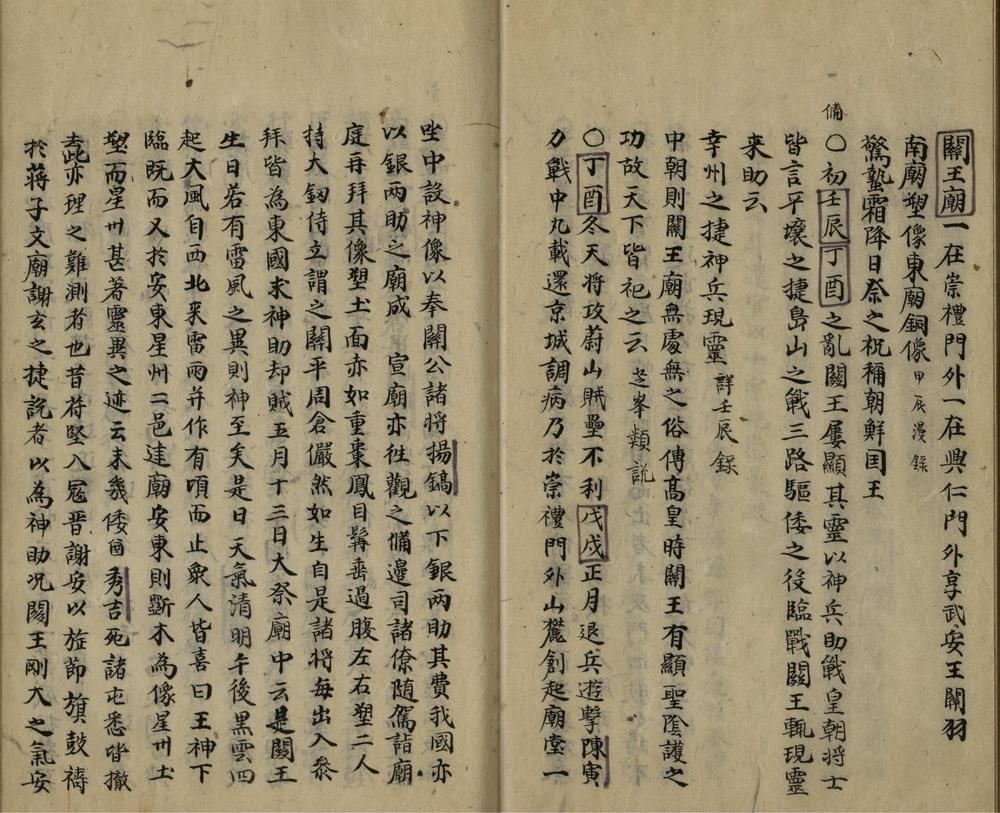 關王廟一在崇禮門外一在興仁門外享武安王關羽
南廟塑像東廟銅像甲辰漫錄
驚蟄霜降日祭之祝稱朝鮮国王
備〇初壬辰丁酉之亂關王屢顯其靈以神兵助戰皇朝将士
皆言平壤之捷島山之戰三路驅倭之後臨戰關王輒現靈
来助云
幸州之捷神兵現靈詳壬辰錄
中朝則關王廟無處無之俗傳髙皇時關王有顯聖陰護之
功故天下皆祀之云芝峯類說
〇丁酉冬天将攻蔚山賊壘不利戊戌正月退兵遊擊陳寅
力戰中丸載還京城調病乃於崇禮門外山麓創起廟堂一
坐中設神像以奉關公諸将揚鎬以下銀兩助其費我國亦
以銀兩助之廟成 宣廟亦徃觀之備邊司諸僚随駕詣廟
庭再拜其像塑土面亦如重棗鳳目髯垂過腹左右塑二人
持大釼侍立謂之關平周倉儼然如生自是諸将每出入叅
拜皆為東國求神助却賊五月十三日大祭廟中云是關王
生日若有雷風之異則神至矣是日天氣清明午後黒雲四
起大風自西北来雷雨并作有頃而止衆人皆喜曰王神下
臨既而又於安東星州二邑建廟安東則斲木為像星州土
塑而星州甚著靈異之迹云未幾倭酋秀吉死諸屯悉皆撤
去此亦理之難測者也昔苻堅入冦晋謝安以旌節旗鼓禱
於蔣子文廟謝玄之捷說者以為神助况關王剛大之氣安